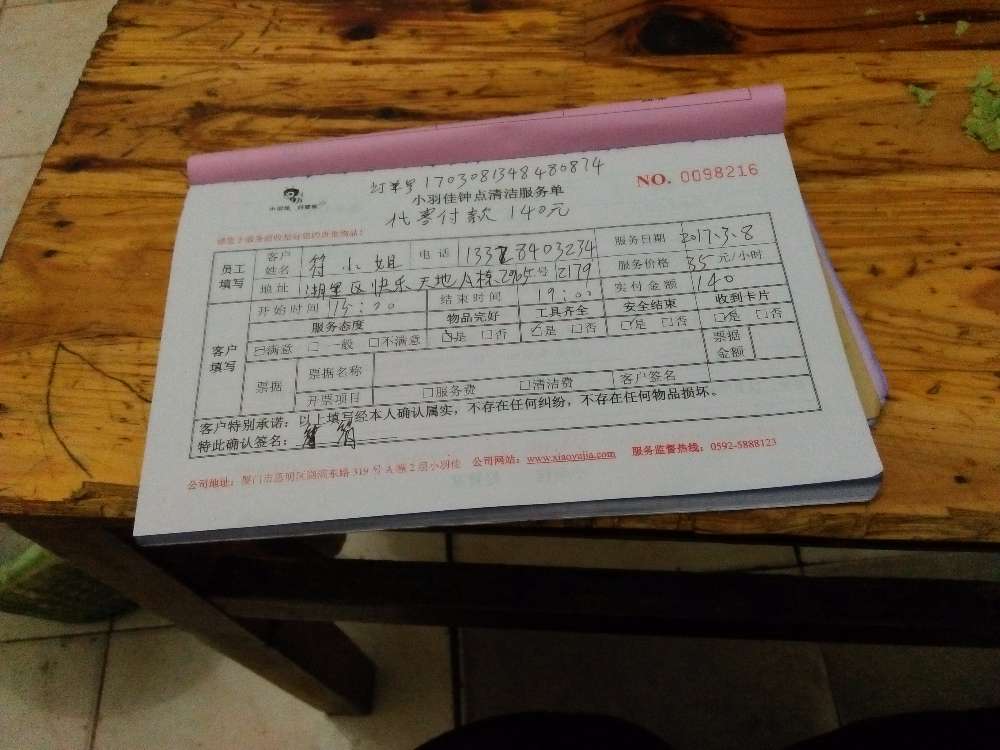 订单号 1703081348480874
小羽佳钟点清洁服务单
NO. 0098216
代客付款 140元
员工填写 客户姓名 符小姐 电话 13328403234 服务日期 2017.3.8
地址 湖里区快乐天地A栋2905号 2179 服务价格 35 元/小时
开始时间 15:00 结束时间 19:00 实付金额 140
客户填写 服务态度 物品完好 工具齐全 安全结束 收到卡片
☑满意 □一般 □不满意 ☑是 □否 ☑是 □否 ☑是 □否 ☑是 □否
票据 票据名称 票据金额
开票项目 □服务费 □清洁费 客户签名
客户特别承诺:以上填写经本人确认属实,不存在任何纠纷,不存在任何物品损坏。
特此确认签名:
公司地址:厦门市思明区湖滨东路319号A座2层小羽佳 公司网站:www.xiaoyujia.com 服务监督热线:0592-5888123